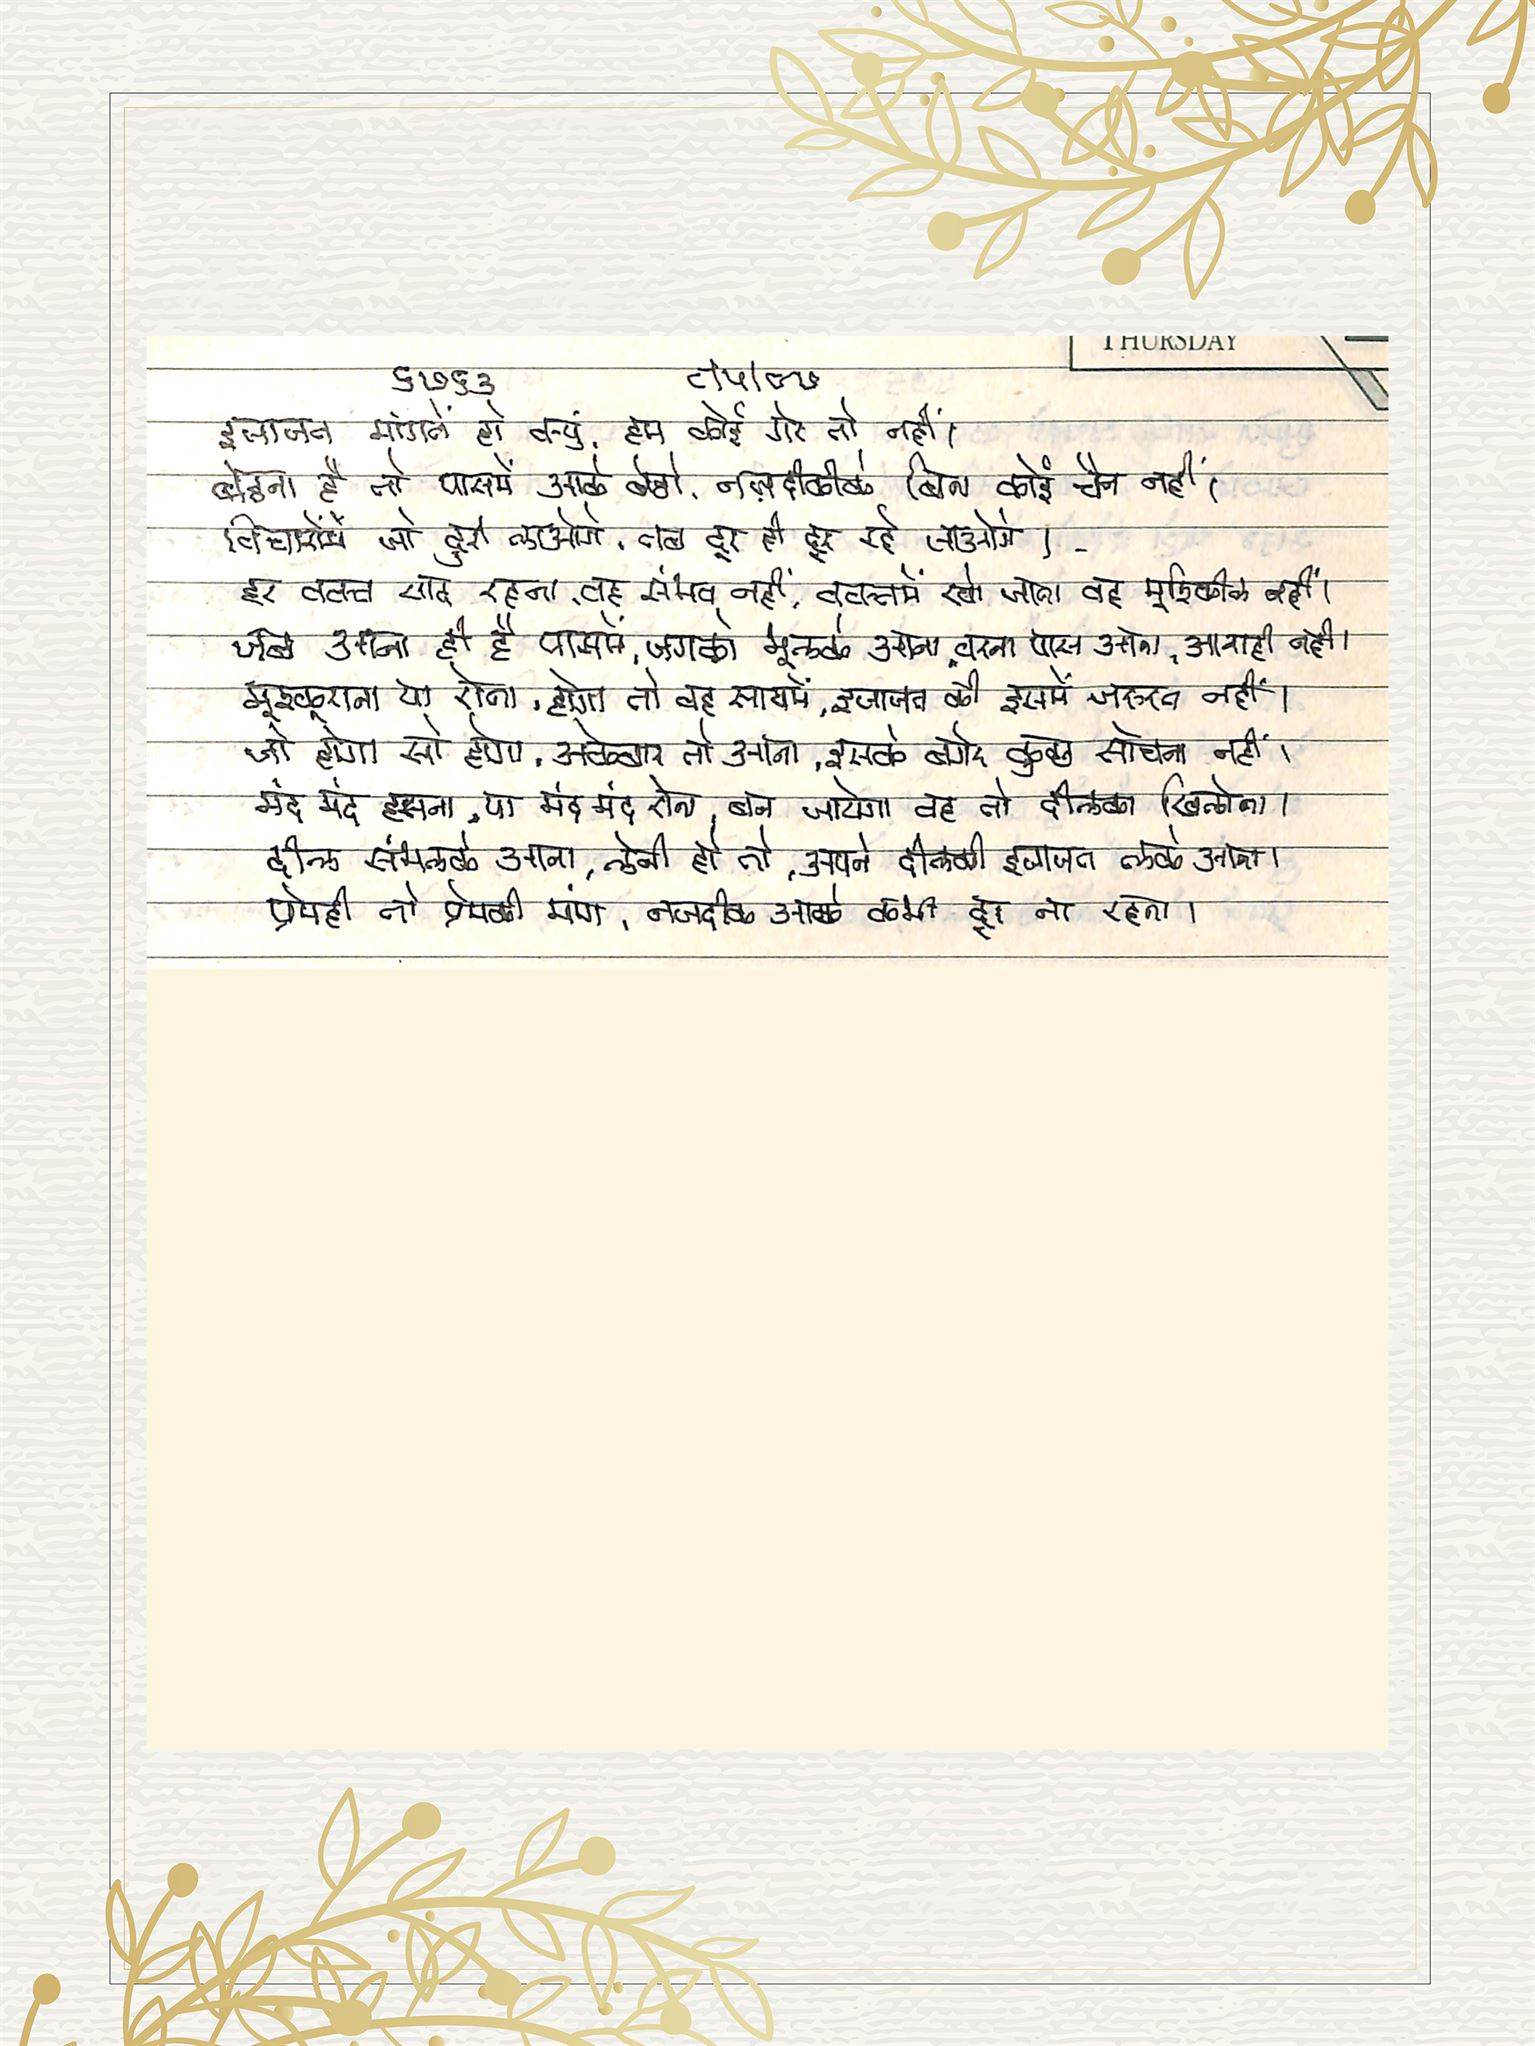 THURSDAY
६७६३ ८।५।८७
इजाजत मांगते हो क्युं, हम कोई गेर तो नहीं।
बेठना है तो पासमें आके बेठो, नज़दीकीके बिना कोई चैन नहीं।
विचारोंमें जो दुरी लाओगे, तब दूर ही दूर रहे जाओगे।
हर वक्त याद रहना, वह संभव नहीं, वक्तमें खो जाना वह मूश्किील नहीं।
जब आना ही है पासमें, जगको भूलके आना, वरना पास आना, आनाही नहीं।
मूश्कूराना या रोना, होगा तो वह साथमें, इजाजत की इसमें जरूरत नहीं।
जो होगा सो होगा, अकेबार तो आना, इसके बगेर कुछ सोचना नहीं।
मंद मंद हसना, या मंद मंद रोना, बन जायेगा वह तो दीलका खिलोना।
दील संभलके आना, लेनी हो तो, अपने दीलकी इजाजत लेके आना।
प्रेमही तो प्रेमकी मांग, नजदीक आके कभी दूर ना रहना।